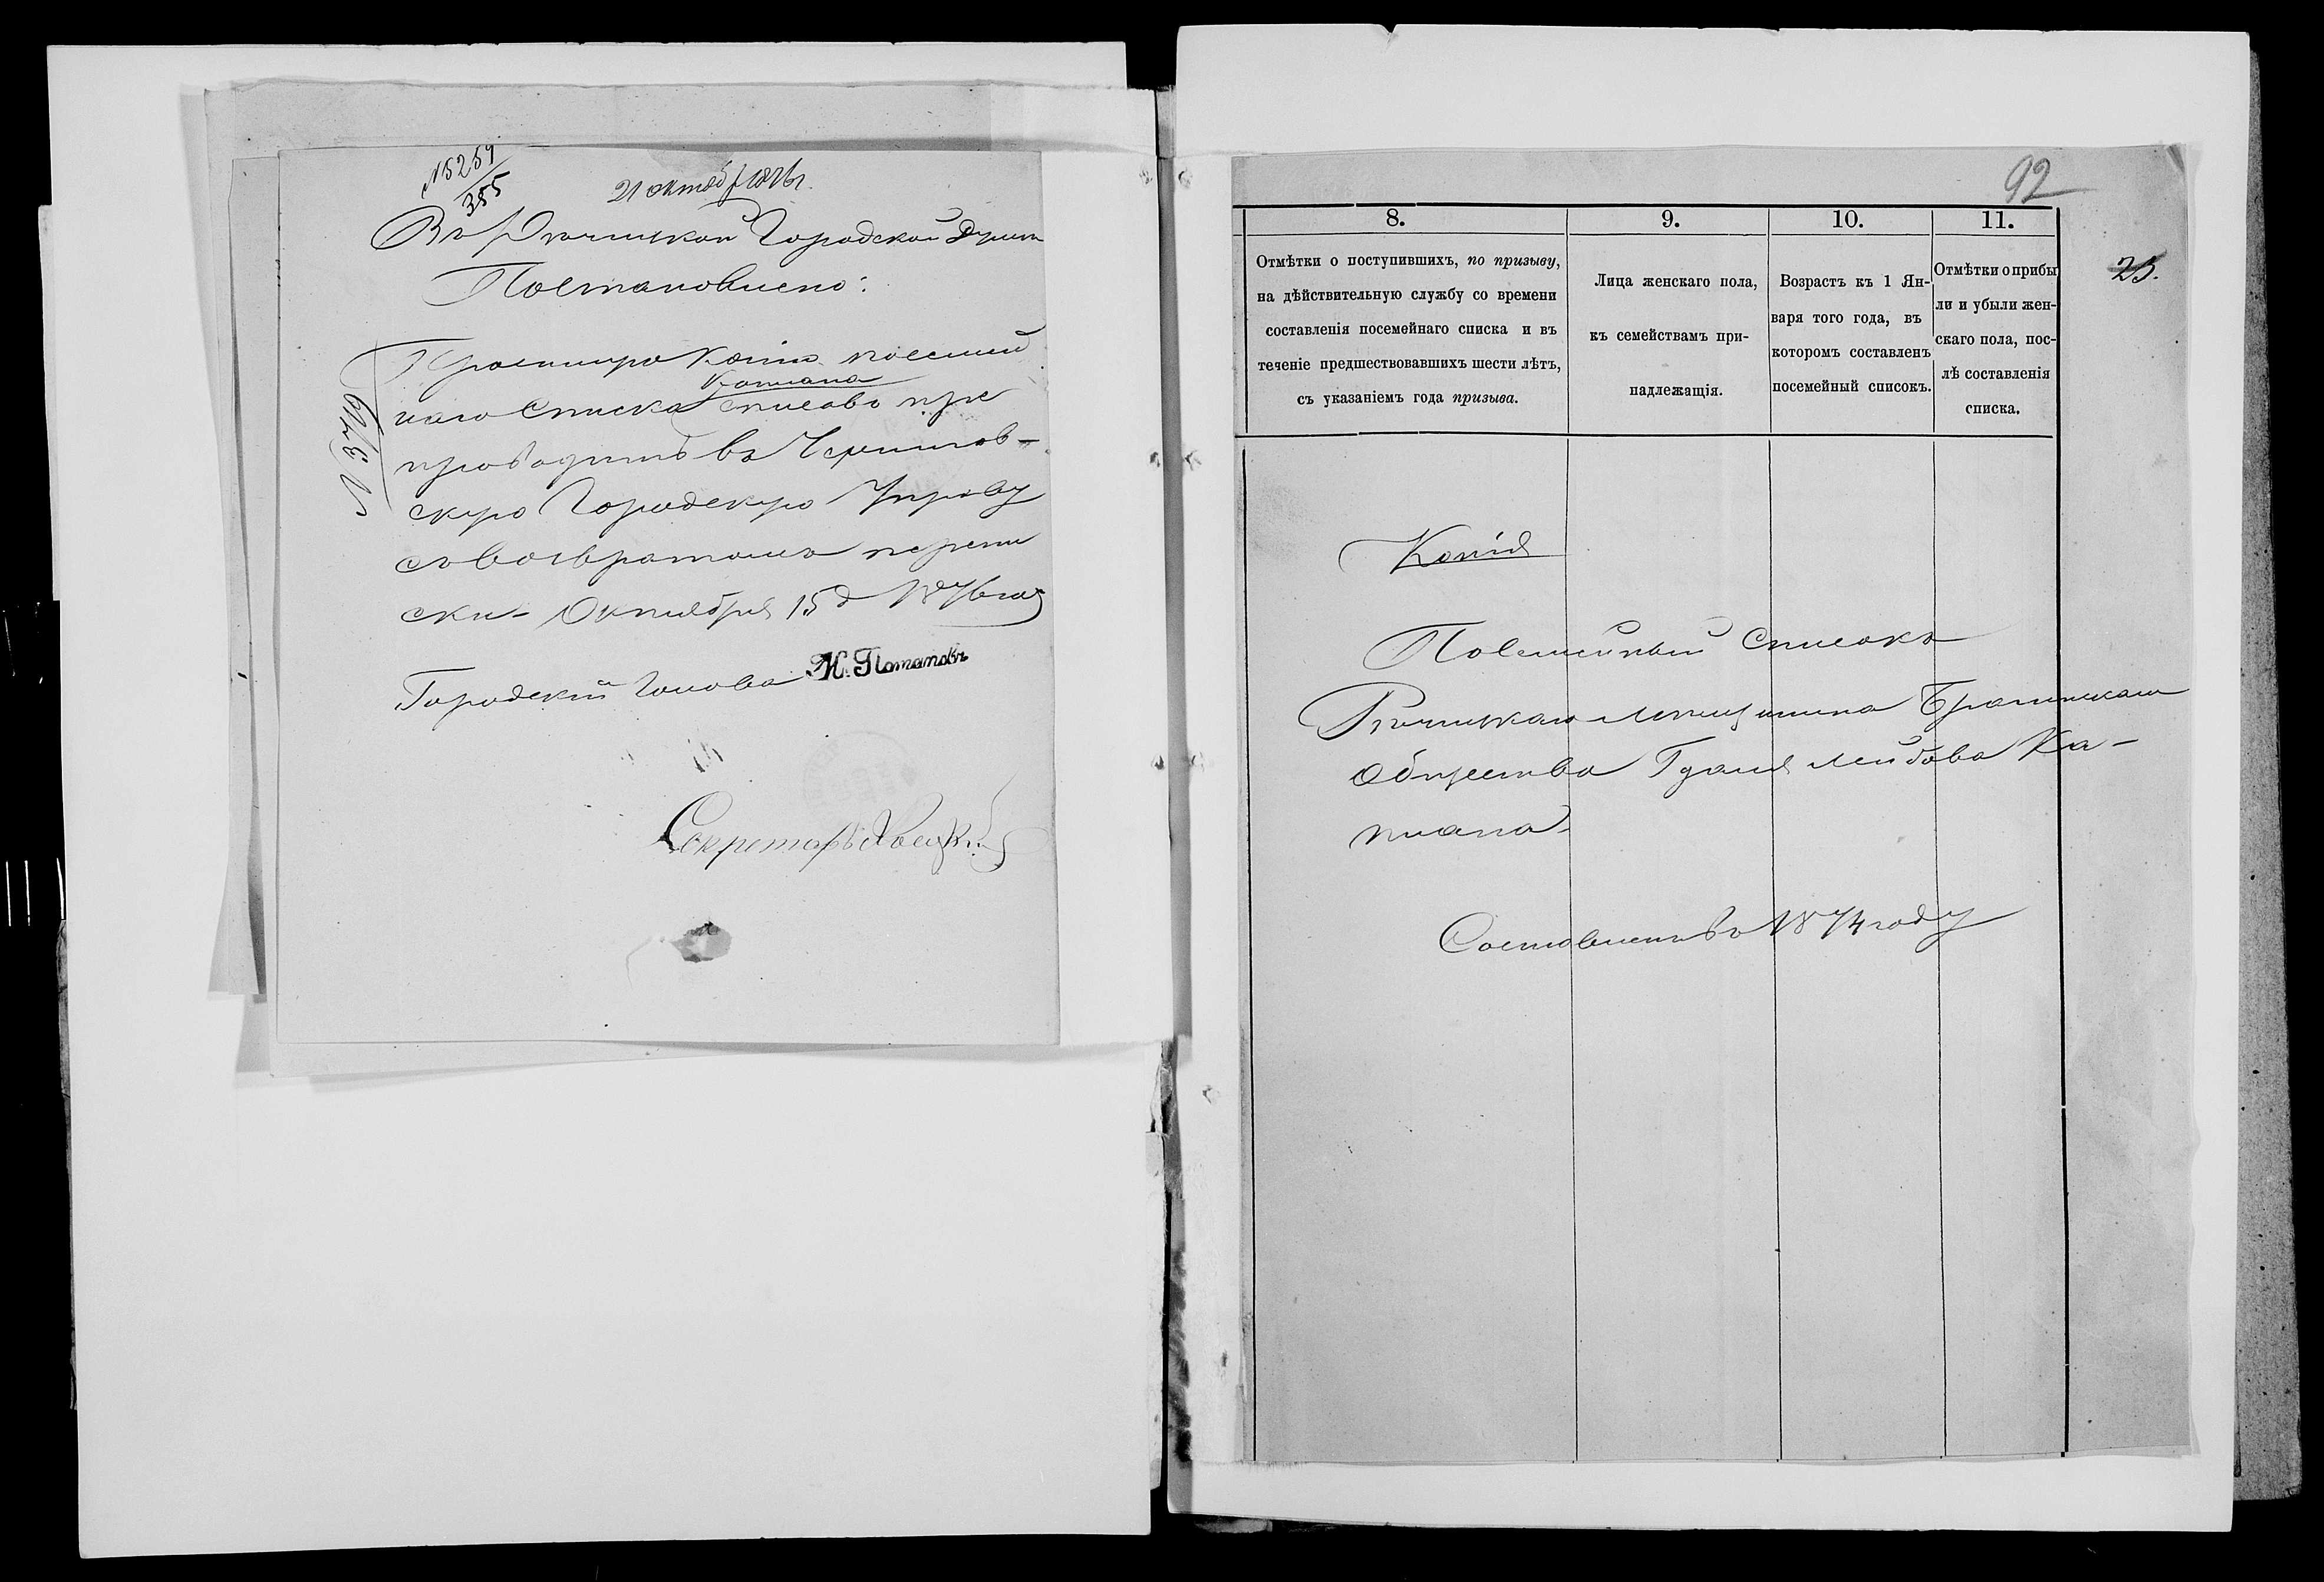 № 5259/355
21 октяб 1876 г.
Въ Рѣчицкой Городской Думѣ
Постановлено:
копію посемей
наго Списка Каплана списавъ пре
проводить въ Чернигов-
скую Городскую Управу
съ возвратомъ перепи
ски - Октября 15 д 1876 года
Городской Голова Н. Потаповъ
Секретарь
92
25.
8. 9. 10. 11.
Отмѣтки о поступившихъ, по призыву,
на дѣйствительную службу со времени
составленія посемейнаго списка и въ
теченіе предшествовавшихъ шести лѣтъ,
съ указаніемъ года призыва.
Лица женскаго пола,
къ семействамъ при-
надлежащія.
Возрастъ къ 1 Ян-
варя того года, въ
которомъ составленъ
посемейный списокъ.
Отмѣтки о прибы
ли и убыли жен-
скаго пола, пос-
лѣ составленія
списка.
Копія
Посемейный списокъ
Рѣчицкаго мѣщанина Брагинскаго
общества Гдаля Лейбова Ка-
плана.
Составленъ въ 1874 году